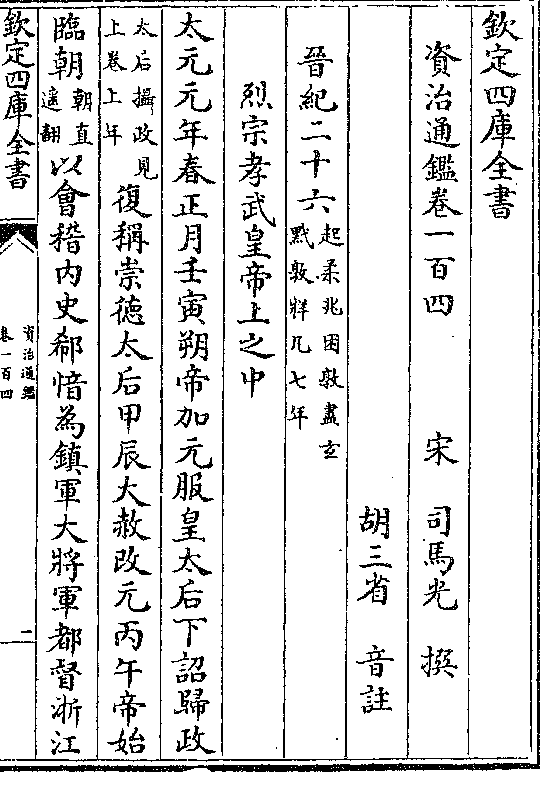 欽定四庫全書
資治通鑑卷一百四
宋　司馬光　撰
胡三省　音註
晉紀二十六起柔兆困敦盡玄
黓敦牂凡七年
烈宗孝武皇帝上之中
太元元年春正月壬寅朔帝加元服皇太后下詔歸政
太后攝政見
上卷上年復稱崇德太后甲辰大赦改元丙午帝始
臨朝朝直
遥翻以會稽内史郗愔為鎮軍大將軍都督浙江
欽定四庫全書
資治通鑑
卷一百四
二